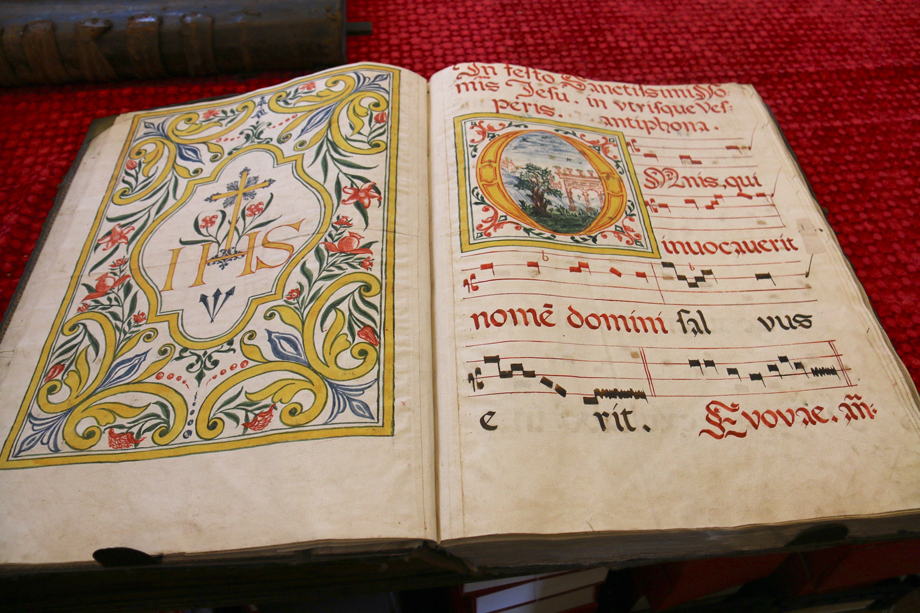 IHS
In festo Sanctissimi No
mīs Jesu. in vtrisque Ves:
peris. antiphona.
OMnis, qui
inuocauerit
nomē domini sal vus
e rit. Evovae. añ.